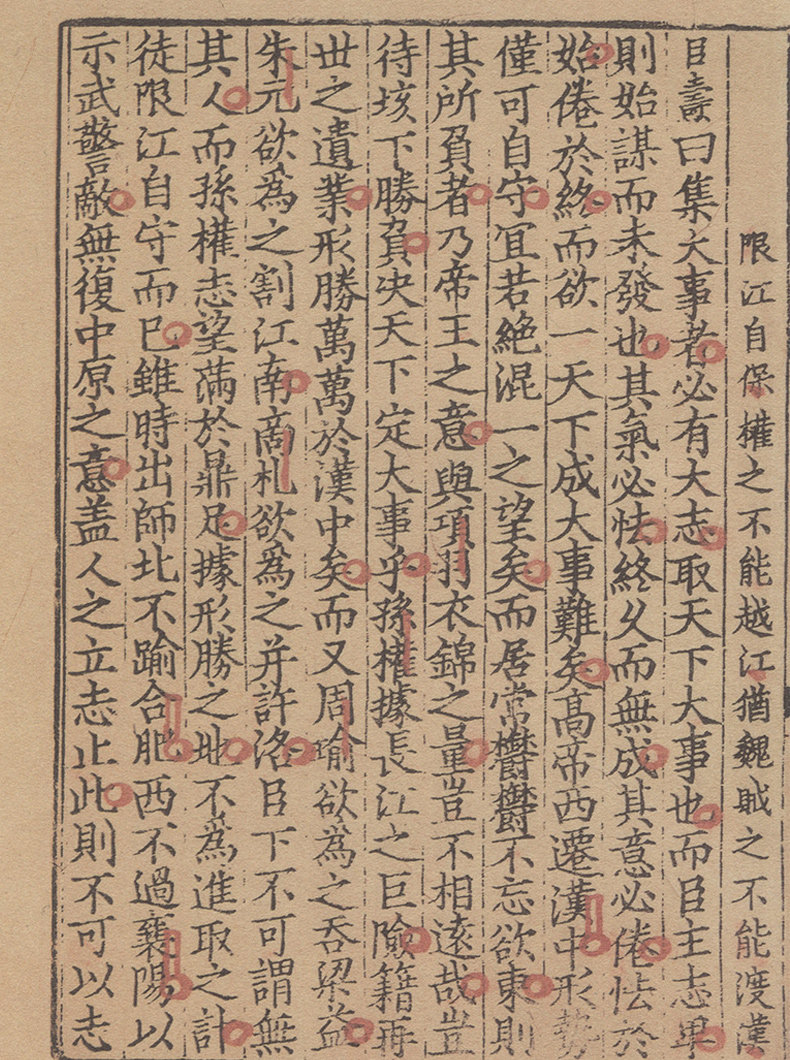 限江自保權之不能越江猶魏賊之不能渡漢
臣壽曰集大事者必有大志取天下大事也而臣主志卑
則始謀而未發也其氣必怯終久而無成其意必倦怯於
始倦於終而欲一天下成大事難矣高帝西遷漢中形勢
僅可自守冝若絶混一之望矣而居常鬱鬱不忘欲東則
其所負者乃帝王之意與項羽衣錦之量豈不相遠哉豈
待垓下勝負决天下定大事乎孫權據長江之巨險籍再
丗之遺業形勝萬萬於漢中矣而又周瑜欲為之吞梁益
朱元欲為之割江南啇札欲為之并許洛臣下不可謂無
其人而孫權志望滿於鼎足據形勝之地不為進取之計
徒限江自守而已雖時出師北不踰合肥西不過襄陽以
示武警敵無復中原之意盖人之立志止此則不可以志